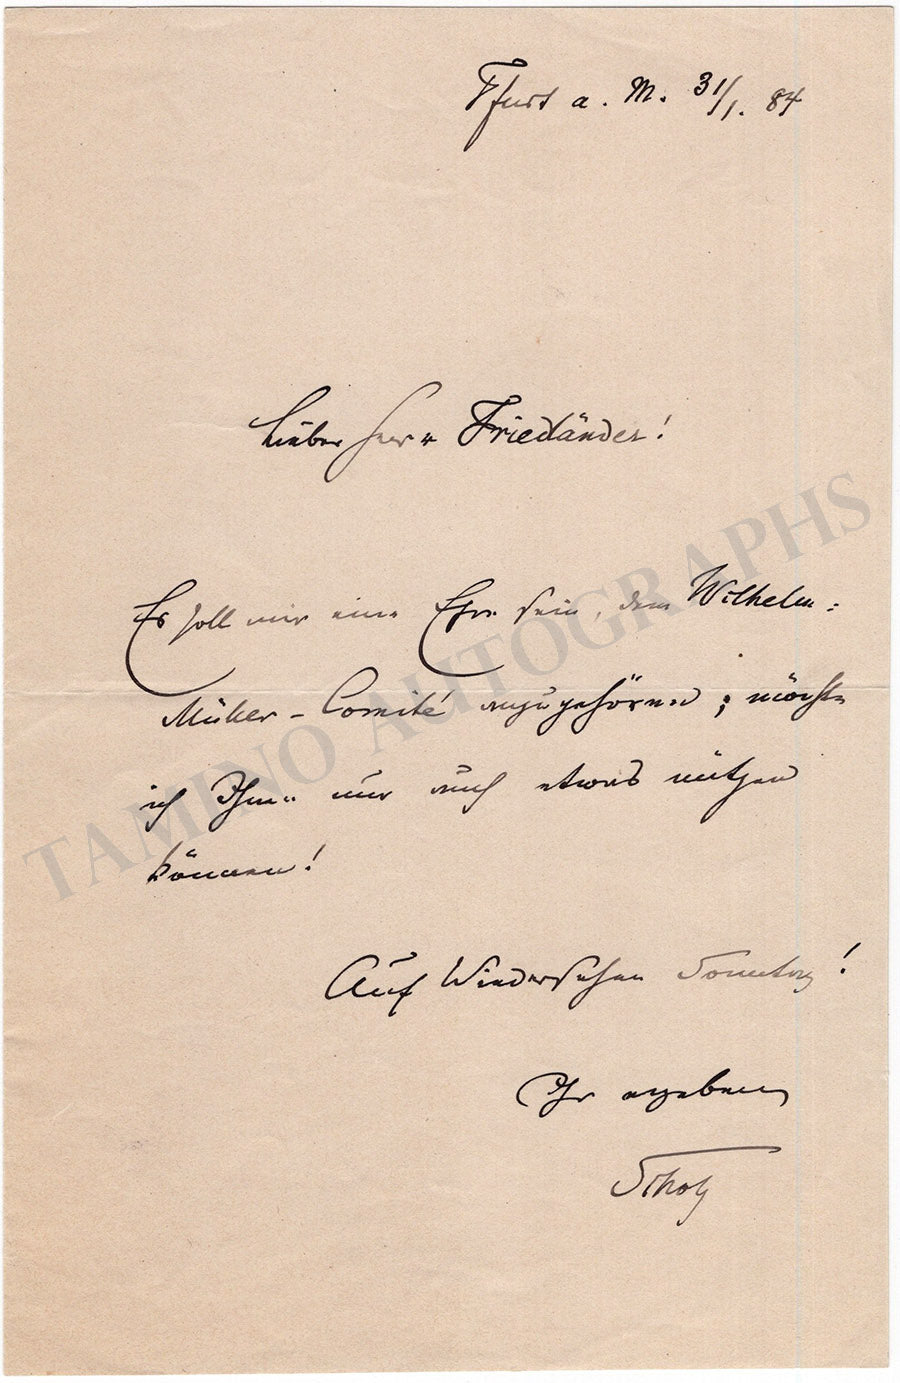 Ffurt a. M. 31/1. 84
Lieber Herr Friedländer!
Es soll mir eine Ehre sein, dem Wilhelm-
Müller-Comité anzugehören; möchte
ich Ihnen nur auch etwas nützen
können!
Auf Wiedersehen Sonntag!
Ihr ergebener
Scholz
TAMINO AUTOGRAPHS